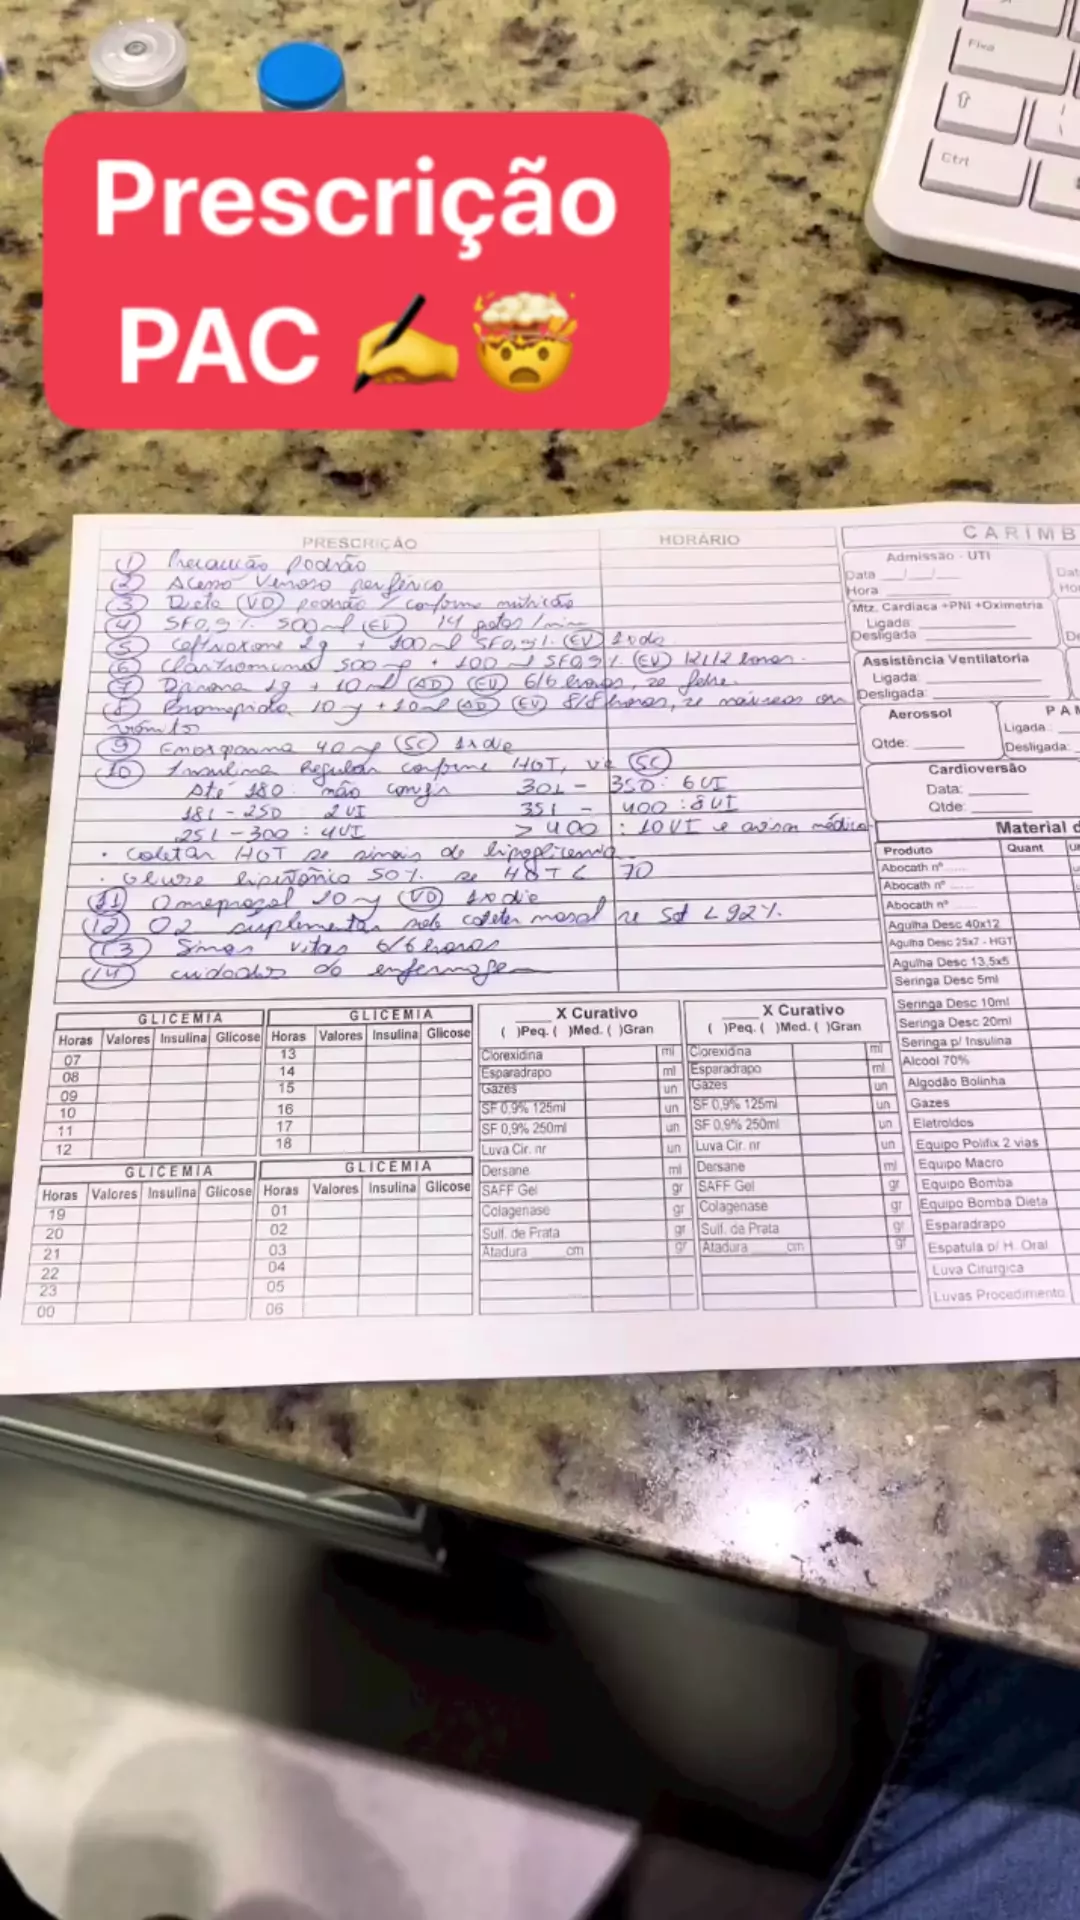 Prescrição
PAC
Fixa
Ctrl
PRESCRIÇÃO
HORÁRIO
1 Precaução Padrão
2 Acesso Venoso periférico
3 Dieta VO padrão / conforme nutrição
4 SF0,9% 500ml EV 14 gotas/min
5 Ceftriaxone 2g + 100ml SF0,9% EV 1xdia
6 Claritromicina 500mg + 100ml SF0,9% EV 12/12 horas.
7 Dipirona 1g + 10ml AD EV 6/6 horas, se febre.
8 Bromoprida 10mg + 10ml AD EV 8/8 horas, se náuseas ou
vômitos
9 Enoxaparina 40mg SC 1xdia
10 Insulina Regular conforme HGT, via SC
Até 180: não corrigir 301 - 350: 6UI
181 - 250: 2UI 351 - 400: 8UI
251 - 300: 4UI > 400: 10UI e avisar médico
• Coletar HGT se sinais de hipoglicemia
• Glicose hipertônico 50% se HGT < 70
11 Omeprazol 20mg VO 1xdia
12 O2 suplementar sob cateter nasal se Sat < 92%.
13 Sinais vitais 6/6 horas
14 cuidados de enfermagem
CARIMB
Admissão - UTI
Data __/__/__
Hora
Mtz. Cardíaca +PNI +Oximetria
Ligada:
Desligada
Assistência Ventilatoria
Ligada:
Desligada:
Aerossol
Qtde:
Ligada:
Desligada:
Cardioversão
Data:
Qtde:
Material d
Produto Quant
Abocath nº
Abocath nº
Abocath nº
Agulha Desc 40x12
Agulha Desc 25x7 - HGT
Agulha Desc 13,5x5
Seringa Desc 5ml
Seringa Desc 10ml
Seringa Desc 20ml
Seringa p/ Insulina
Alcool 70%
Algodão Bolinha
Gazes
Eletroldos
Equipo Polifix 2 vias
Equipo Macro
Equipo Bomba
Equipo Bomba Dieta
Esparadrapo
Espatula p/ H. Oral
Luva Cirurgica
Luvas Procedimento
GLICEMIA
Horas Valores Insulina Glicose
07
08
09
10
11
12
GLICEMIA
Horas Valores Insulina Glicose
13
14
15
16
17
18
GLICEMIA
Horas Valores Insulina Glicose
19
20
21
22
23
00
GLICEMIA
Horas Valores Insulina Glicose
01
02
03
04
05
06
X Curativo
( )Peq. ( )Med. ( )Gran
Clorexidina ml
Esparadrapo ml
Gazes un
SF 0,9% 125ml un
SF 0,9% 250ml un
Luva Cir. nr un
Dersane ml
SAFF Gel gr
Colagenase gr
Sulf. de Prata gr
Atadura cm gr
X Curativo
( )Peq. ( )Med. ( )Gran
Clorexidina ml
Esparadrapo ml
Gazes un
SF 0,9% 125ml un
SF 0,9% 250ml un
Luva Cir. nr un
Dersane ml
SAFF Gel gr
Colagenase gr
Sulf. de Prata gr
Atadura cm gr